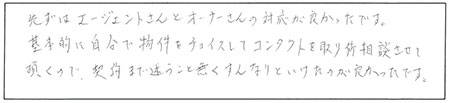 先ずはエージェントさんとオーナーさんの対応が良かったです。
基本的に自分で物件をチョイスしてコンタクトを取り相談させて
頂くので、契約まで迷うこと無くすんなりといけたのが良かったです。